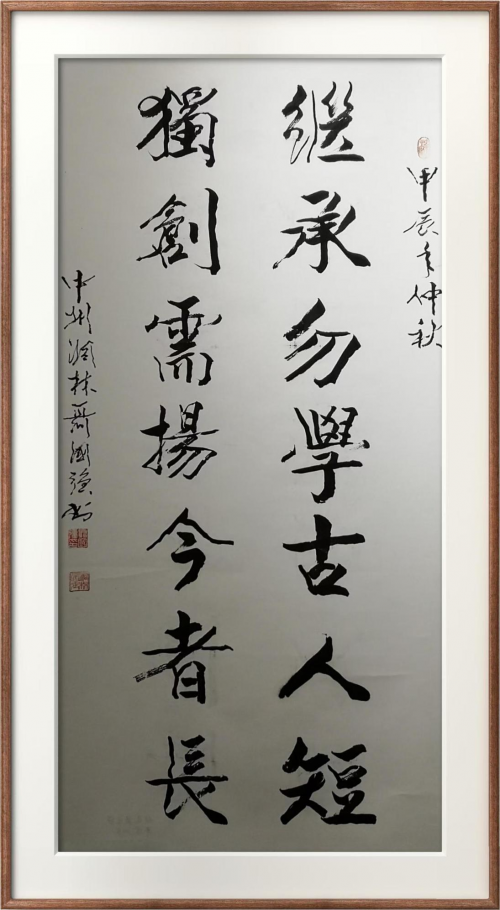 甲辰年仲秋
繼承勿學古人短
獨創需揚今者長
中州林聶國強書